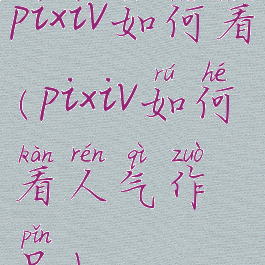 pixiv如何看
rú hé
(pixiv如何
kàn rén qì zuò
看人气作
pǐn
品)